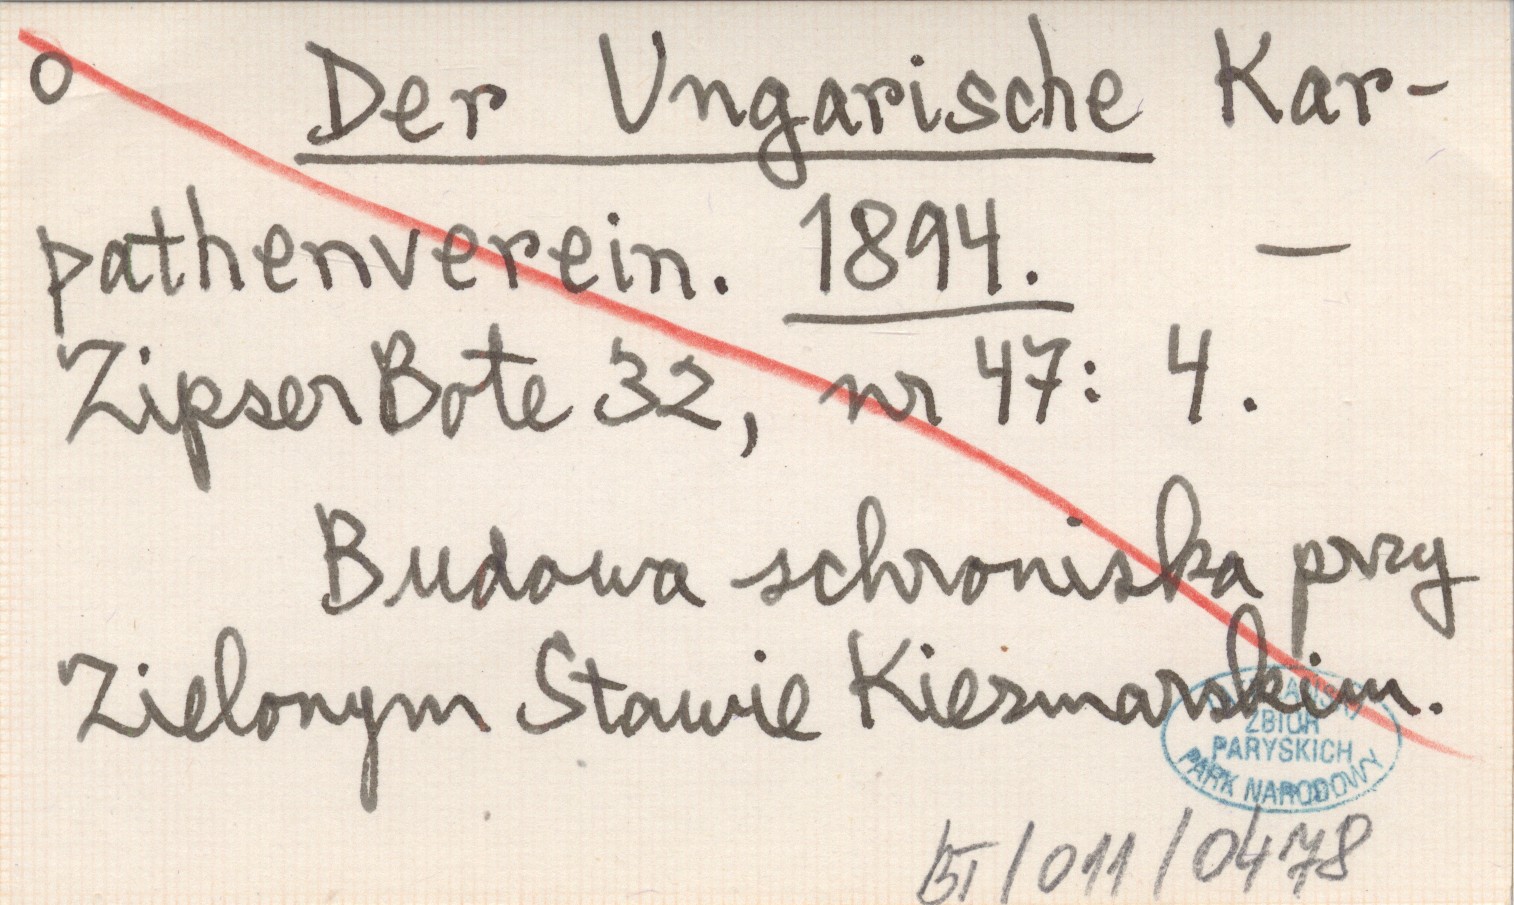 o Der Ungarische Kar-
pathenverein. 1894. —
Zipser Bote 32, nr 47: 4.
Budowa schroniska przy
Zielonym Stawie Kiezmarskim.
ZBIÓR
PARYSKICH
PARK NARODOWY
/011/0478